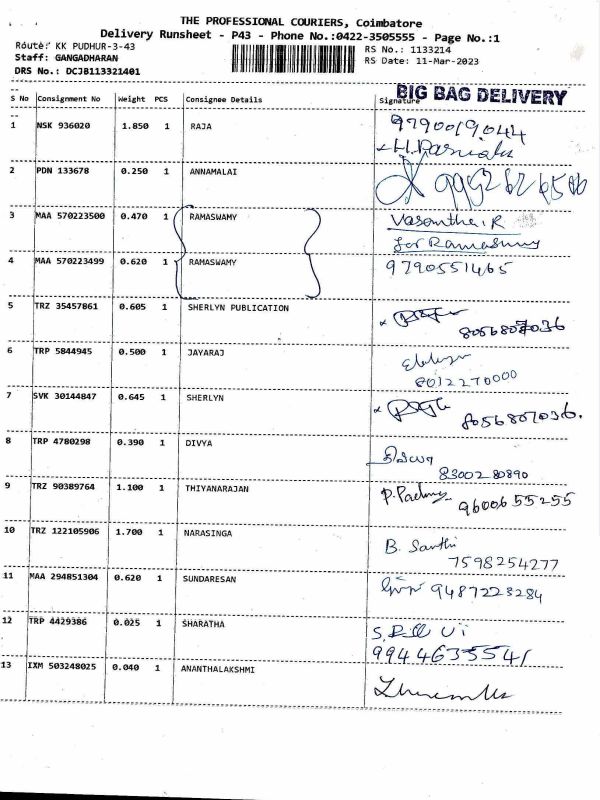 THE PROFESSIONAL COURIERS, Coimbatore
Delivery Runsheet - P43 - Phone No.:0422-3505555 - Page No.:1
Route: KK PUDHUR-3-43
RS No.: 1133214
Staff: GANGADHARAN
RS Date: 11-Mar-2023
DRS No.: DCJB113321401
BIG BAG DELIVERY
S No Consignment No Weight PCS Consignee Details Signature
1 NSK 936020 1.850 1 RAJA 9790019044
2 PDN 133678 0.250 1 ANNAMALAI
3 MAA 570223500 0.470 1 RAMASWAMY Vasantha.R
for Ramaswamy
4 MAA 570223499 0.620 1 RAMASWAMY 9790551465
5 TRZ 35457861 0.605 1 SHERLYN PUBLICATION
8056807036
6 TRP 5844945 0.500 1 JAYARAJ
8012270000
7 SVK 30144847 0.645 1 SHERLYN 8056807036.
8 TRP 4780298 0.390 1 DIVYA
8300280890
9 TRZ 90389764 1.100 1 THIYANARAJAN 9600655255
10 TRZ 122105906 1.700 1 NARASINGA B. Santhi
7598254277
11 MAA 294851304 0.620 1 SUNDARESAN 9487223284
12 TRP 4429386 0.025 1 SHARATHA
9944635541
13 IXM 503248025 0.040 1 ANANTHALAKSHMI